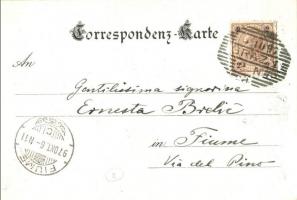 Correspondenz-Karte
An
Gentilissima signorina
Ernesta Brelić
in Fiume
Via del Pino
FIUME
97 OKT. 6